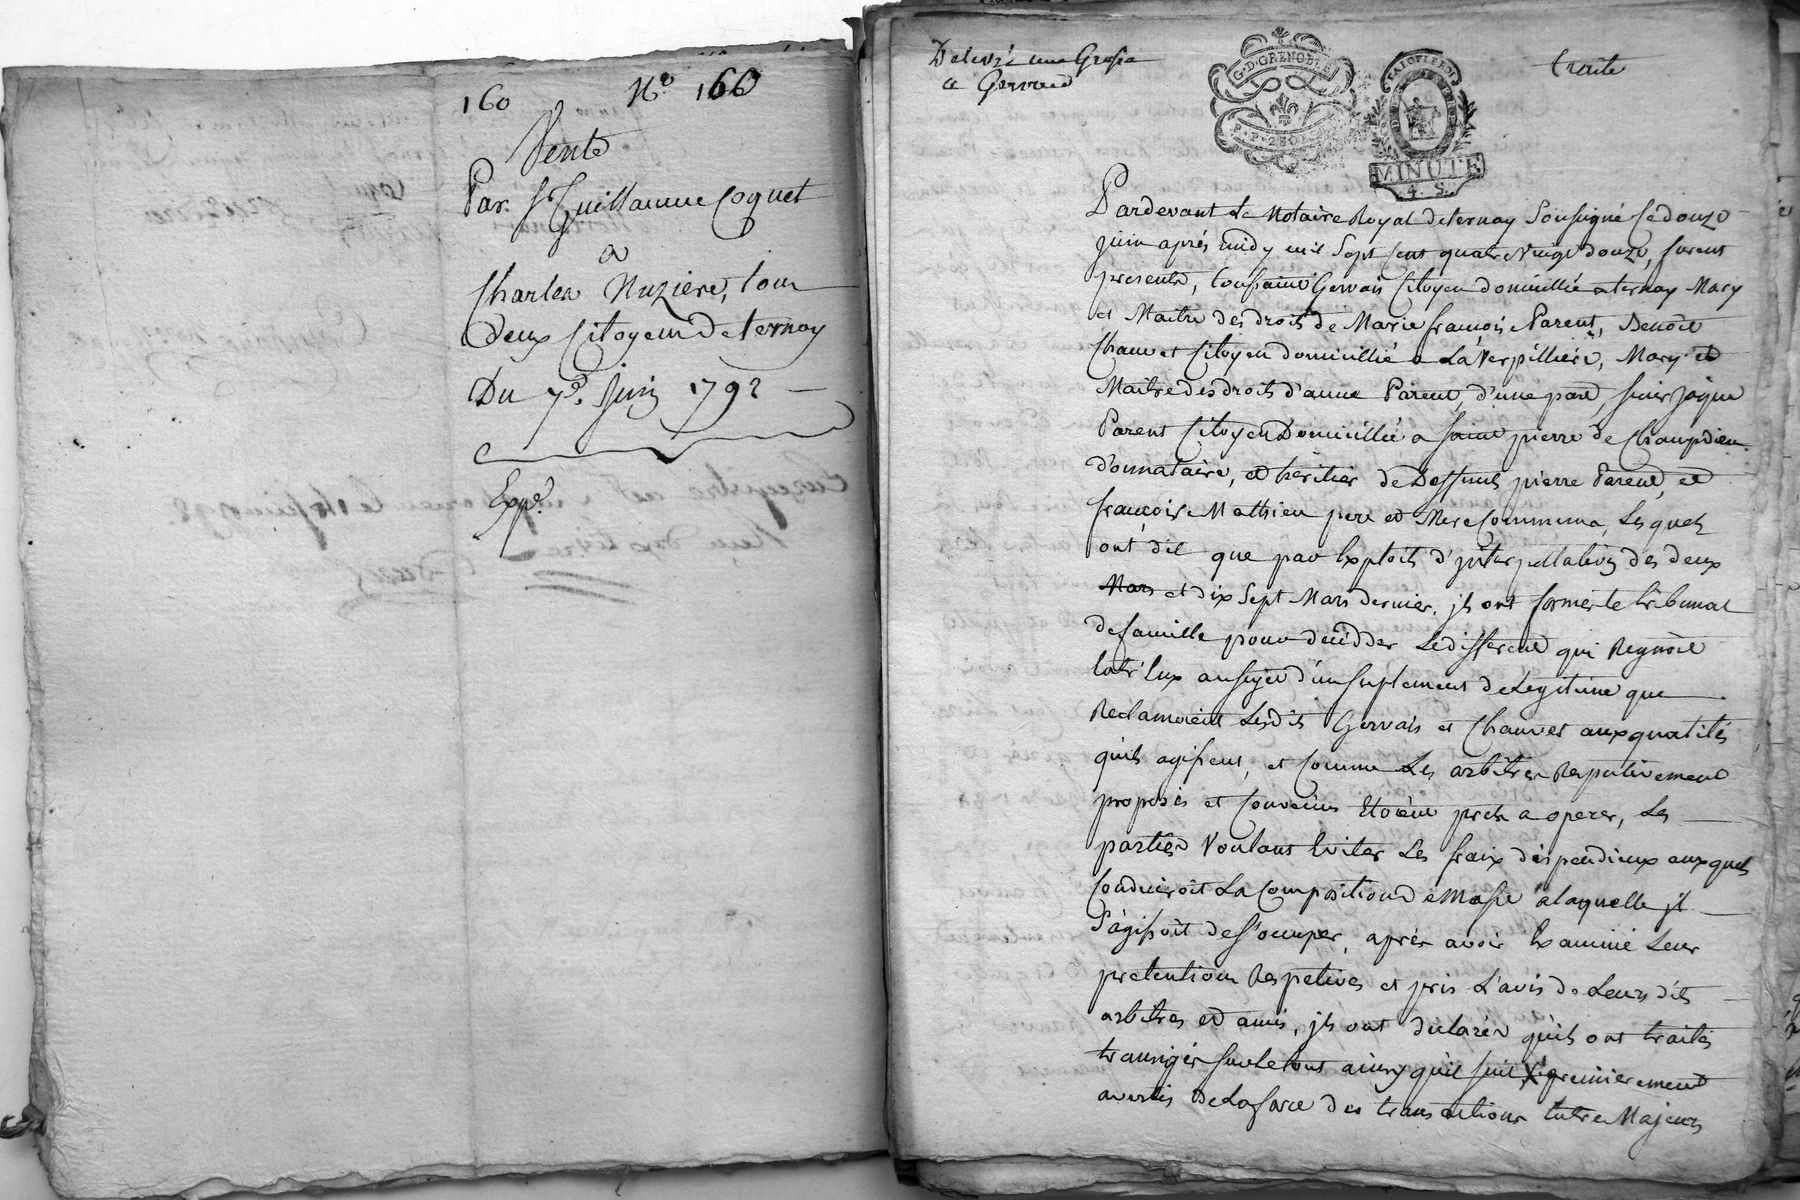 160 N° 160
Vente
Par Sr Guillaume Coquet
a
Charles Nuziere, tous
deux Citoyens de ternay
Du 7e. Juin 1792
Expé.
Delivré une Grosse
a Gervais
G.D. GRENOBLE
LA LOI LE ROI
MINUTE
4. S.
traité
Pardevant Le Notaire Royal de ternay Soussigné Ce douze
juin aprés midy mil Sept Cent quatre Vingt douze, furent
presents, toussaint Gervais Citoyen domicillié a ternay Mary
et Maitre des droits de Marie françoise Parent, Benoit
Chauvet Citoyen domicillié a La Verpilliere, Mary et
Maitre des droits d'anne Parent, d'une part, sieur Jaque
Parent Citoyen Domicillié a Saint pierre de Chandieu
donnataire, et heritier de Deffunts pierre Parent, et
françoise Mathieu pere et Mere Communs, Les quels
ont dit que par Exploits d'jnterpellation des deux
Mars et dix Sept Mars dernier, jls ont former le tribunal
de famille pour decidder Le different qui Regnoit
Entr'Eux au sujet d'un suplement de Legitime que
Reclamoient Lesdits Gervais et Chauvet aux qualités
qu'ils agissent, et Comme Les arbitres Respectivement
proposés et Convenus Etoient prets a operer, Les
parties Voulant Eviter Les fraix dispendieux aux quels
Conduiroit La Composition de Masse a laquelle jl
S'agissoit de s'occuper, aprés avoir Examiné Leur
pretentions Respetives et pris L'avis de Leurs dits
arbitres et amis, jls ont declarés qu'ils ont traités
transigés sur le tout ainsy qu'il suit, premierement
avertis De La force des transactions Entre Majeurs